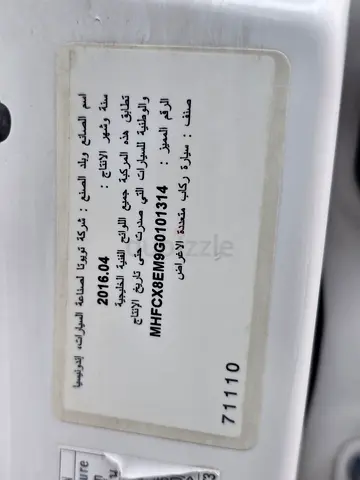 اسم الصانع وبلد الصنع : شركة تويوتا لصناعة السيارات، إندونيسيا
سنة وشهر الانتاج : 2016.04
تطابق هذه المركبة جميع اللوائح الفنية الخليجية
والوطنية للسيارات التي صدرت حتى تاريخ الإنتاج
الرقم المميز : MHFCX8EM9G0101314
صنف : سيارة ركاب متعددة الاغراض
71110